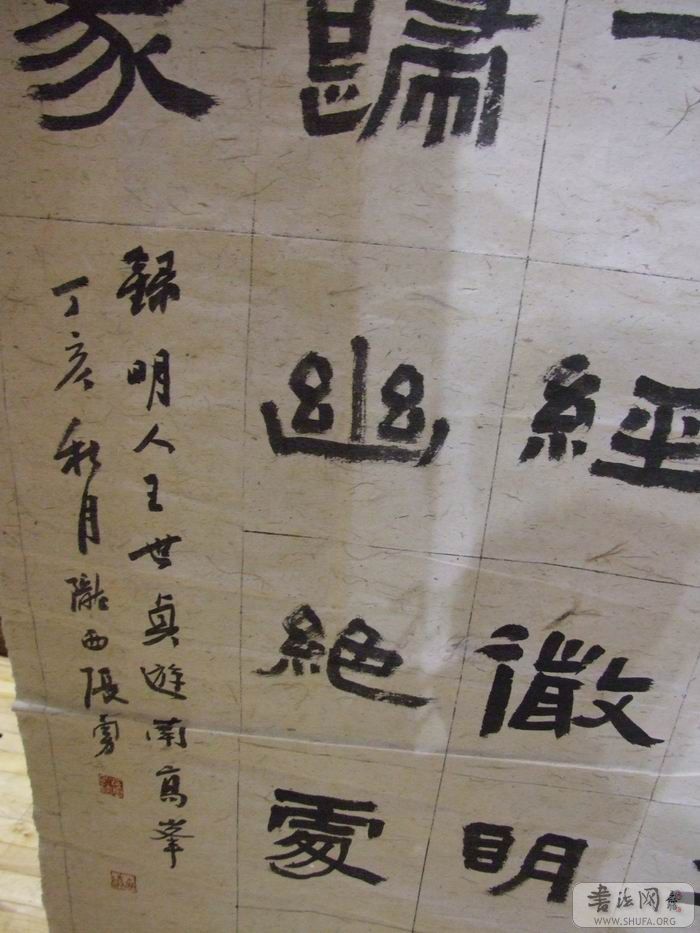 經
明
歸幽絕處
家
錄明人王世貞遊南高峯
丁亥秋月隴西張勇
书法网
WWW.SHUFA.ORG